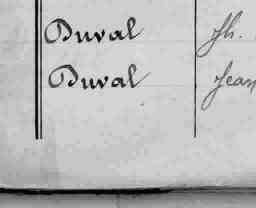 Duval Jh.
Duval Jean